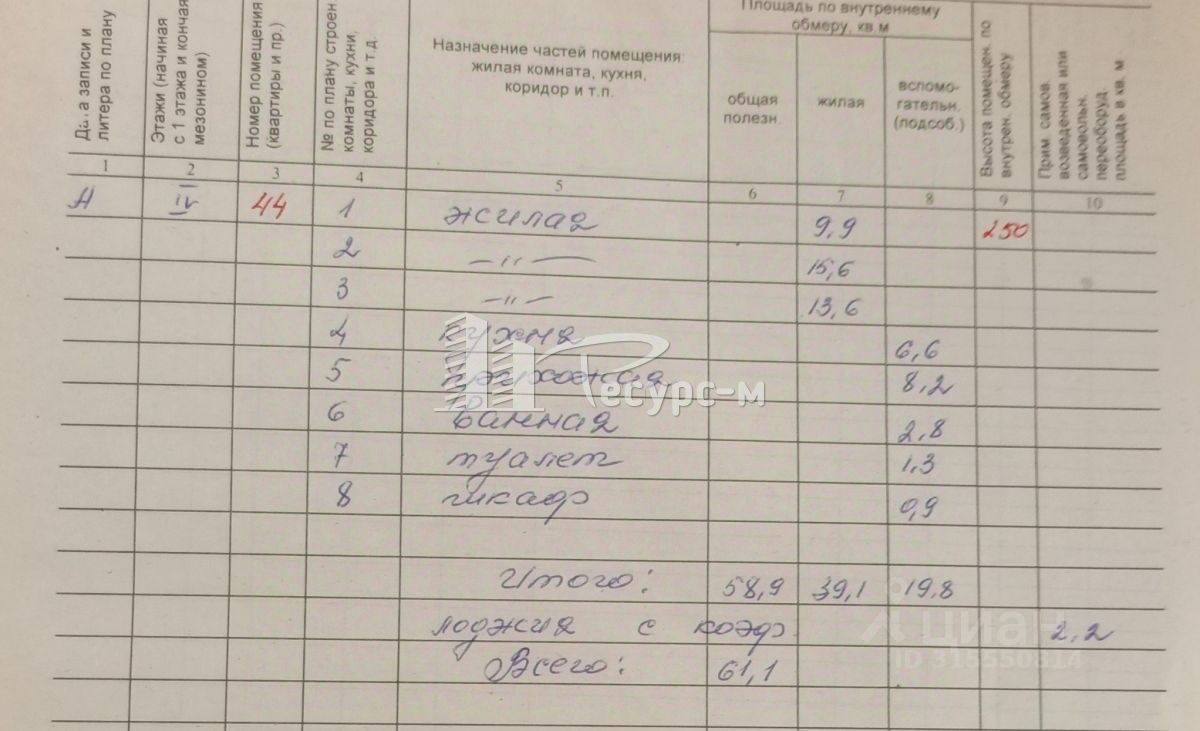 Дата записи и литера по плану
Этажи (начиная с 1 этажа и кончая мезонином)
Номер помещения (квартиры и пр.)
№ по плану строен. комнаты, кухни, коридора и т.д.
Назначение частей помещения: жилая комната, кухня, коридор и т.п.
Площадь по внутреннему обмеру, кв.м
общая полезн.
жилая
вспомо-гательн. (подсоб.)
Высота помещен. по внутрен. обмеру
Прим. самов. возведенная или самовольн. переоборуд. площадь в кв. м
1 2 3 4 5 6 7 8 9 10
А IV 44 1 жилая 9,9 250
2 —"— 15,6
3 —"— 13,6
4 кухня 6,6
5 прихожая 8,2
6 Ванная 2,8
7 туалет 1,3
8 шкаф 0,9
Итого: 58,9 39,1 19,8
лоджия с коэф 2,2
Всего: 61,1
Ресурс-м
циан
ID 315550314